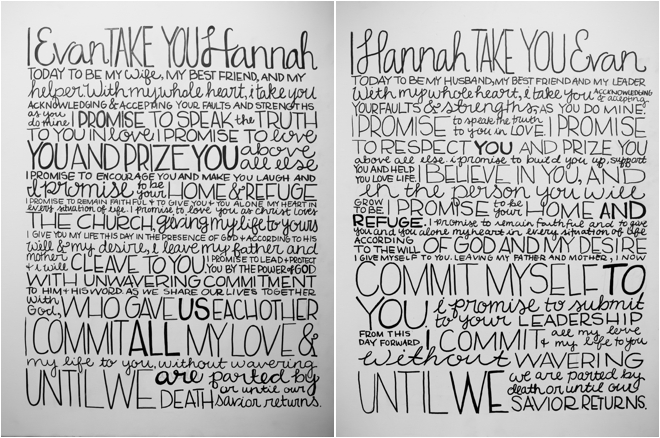 I Evan TAKE YOU Hannah
TODAY TO BE MY Wife, MY BEST FRIEND, AND MY
helper With my whole heart, i take you
ACKNOWLEDGING & ACCEPTING YOUR FAULTS AND STRENGTHS
as you do mine. I PROMISE TO SPEAK the TRUTH
TO YOU IN love I PROMISE TO love
YOU AND PRIZE YOU above all else
I PROMISE TO ENCOURAGE YOU AND MAKE YOU LAUGH AND
I promise to be your HOME & REFUGE
I PROMISE TO REMAIN FAITHFUL & TO GIVE YOU & YOU ALONE MY HEART IN
every situation of life. I promise to love you as Christ loves
THE CHURCH, giving my life to yours
I GIVE YOU MY LIFE THIS DAY IN THE PRESENCE OF GOD & ACCORDING TO HIS
will & my desire, i leave my father and
mother & i will CLEAVE TO YOU. I PROMISE TO LEAD & PROTECT YOU BY THE POWER of GOD
WITH UNWAVERING COMMITMENT
TO HIM & HIS WORD. AS WE SHARE OUR LIVES TOGETHER
With God, WHO GAVE US EACH OTHER
I COMMIT ALL MY LOVE &
my life to you, without wavering
UNTIL WE are parted by DEATH or until our savior returns.
I Hannah TAKE YOU Evan
TODAY TO BE MY HUSBAND, MY BEST FRIEND AND MY LEADER
With my whole heart, i take you ACKNOWLEDGING & accepting
YOUR FAULTS & strengths, AS YOU DO MINE.
I PROMISE to speak the truth to you in LOVE. I PROMISE
TO RESPECT YOU AND PRIZE YOU
above all else i promise to build you up, support
YOU AND HELP YOU LOVE LIFE. I BELIEVE IN YOU, AND
in the person you will
GROW TO BE. I PROMISE to be your HOME AND
REFUGE. I promise to remain faithful and to give
you and you alone my heart in every situation of life
ACCORDING TO THE WILL OF GOD AND MY DESIRE
I GIVE MYSELF TO YOU. LEAVING MY FATHER AND MOTHER, I NOW
COMMIT MYSELF TO
YOU i promise to submit to your LEADERSHIP
FROM THIS DAY FORWARD I COMMIT all my love & my life to you
without WAVERING
UNTIL WE we are parted by death or until our SAVIOR RETURNS.